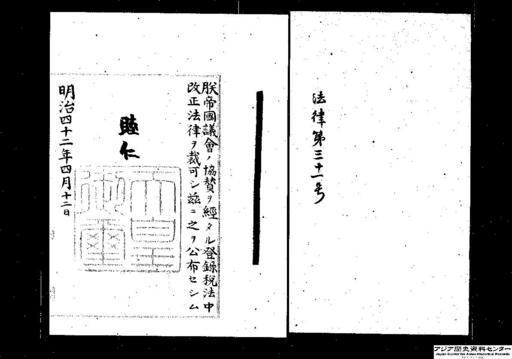 法律第三十一号
朕帝國議會ノ協賛ヲ經タル登録税法中
改正法律ヲ裁可シ茲ニ之ヲ公布セシム
睦仁
明治四十二年四月十二日
アジア歴史資料センター
Japan Center for Asian Historical Records